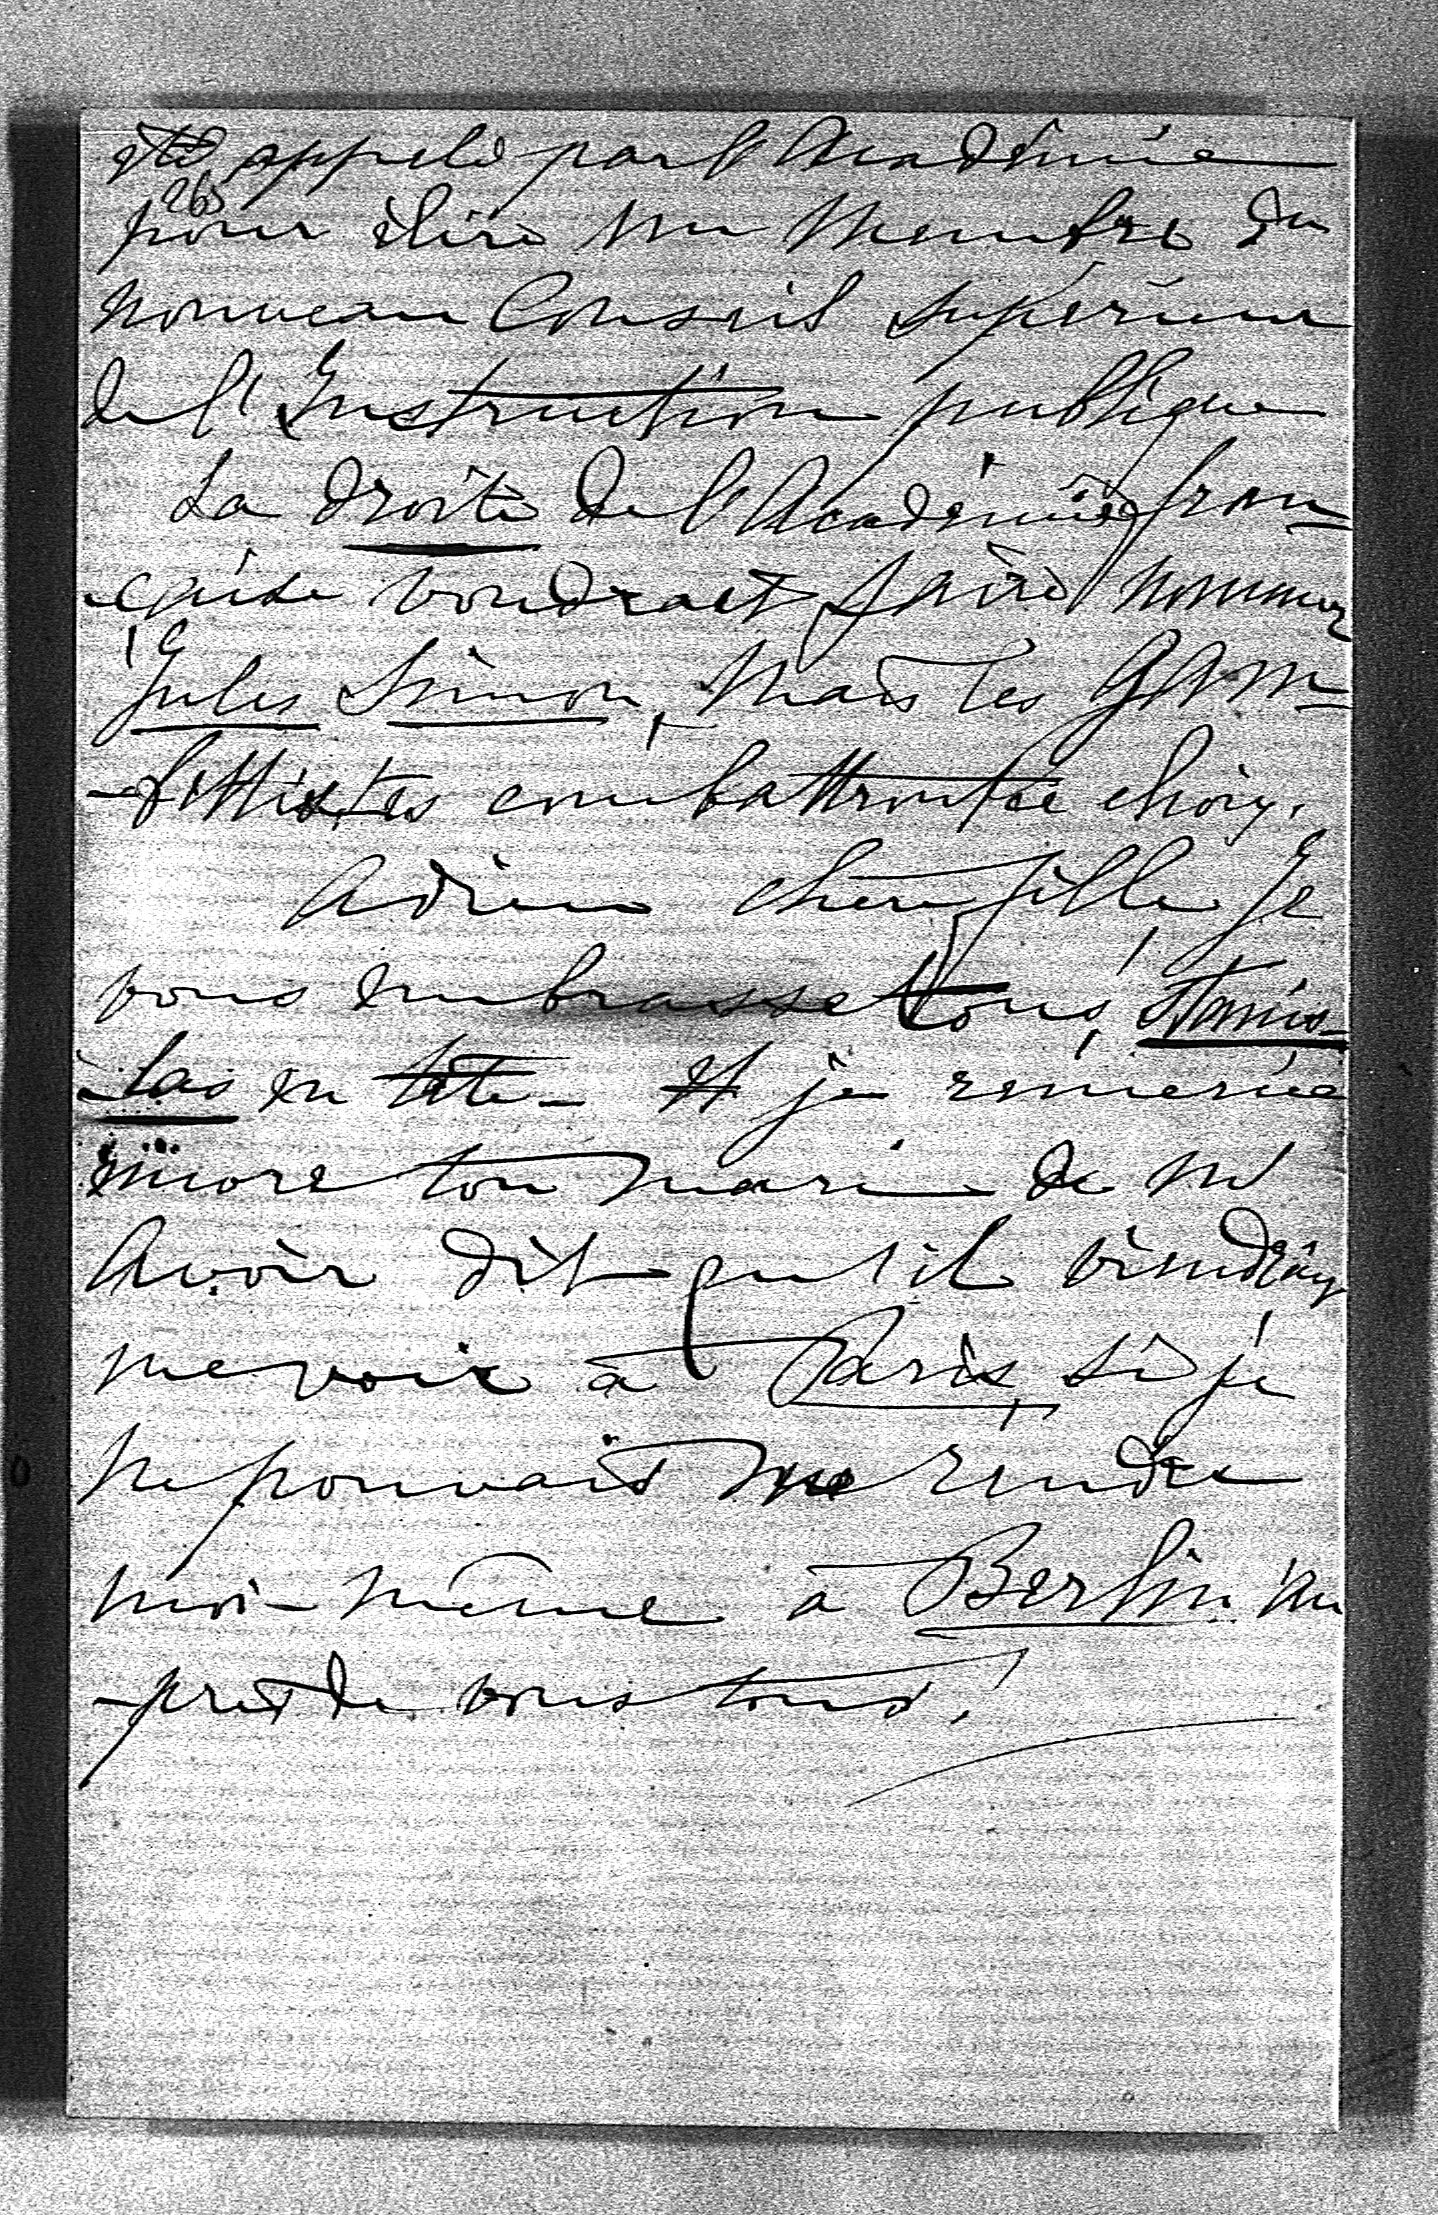 été appelé par l'Académie
265
pour élire un Membre du
nouveau Conseil supérieur
de l'Instruction publique
La droite de l'Académie fran-
-çaise voudrait faire nommer
Jules Simon, Mais les GAM-
-bettistes combattront ce choix.
Adieu chère fille, Je
vous embrasse tous, Stanis-
-las en tête - Et je remercie
encore ton mari de m'
avoir dit qu'il viendrait
me voir à Paris, si je
ne pouvais me rendre
moi-même à Berlin au-
-près de vous tous!